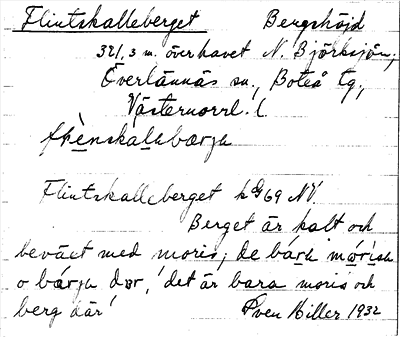 Flintskalleberget Bergshöjd
321,3 m. över havet N. Björksjön,
Överlännäs sn., Boteå tg,
Västernorrl. l.
Flintskalleberget k G69 NV.
Berget är kalt och
beväxt med moris; de bárɑ
o bárja dar, 'det är bara moris och
berg där' Sven Hiller 1932